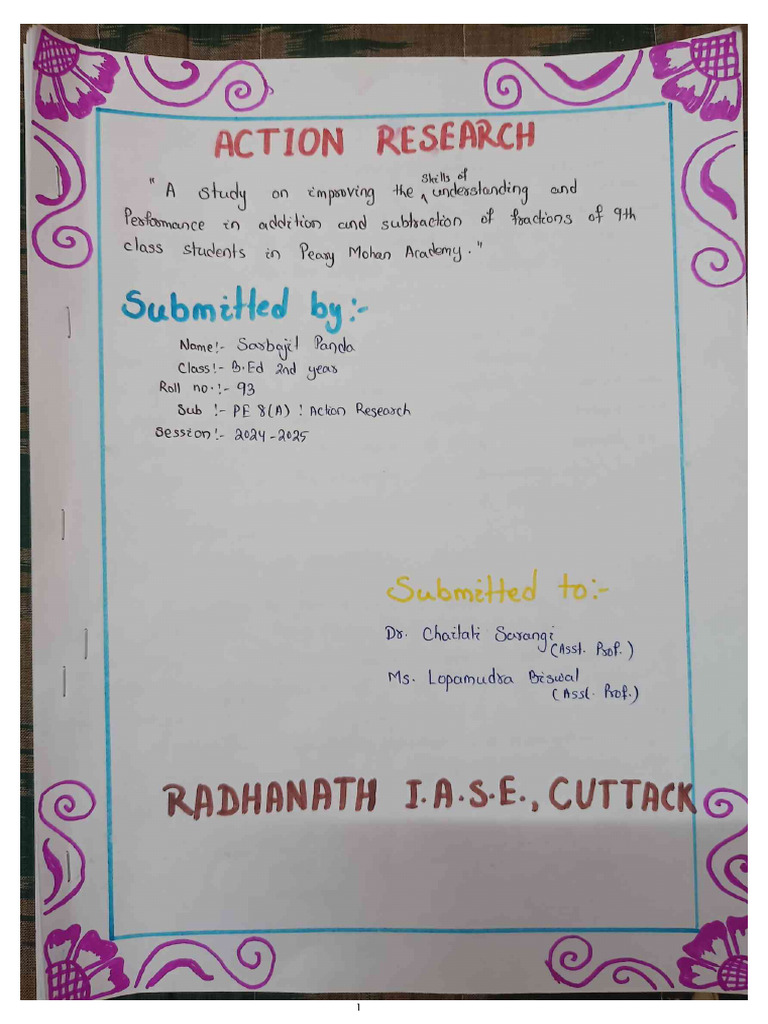 ACTION RESEARCH
"A study on improving the skills of understanding and
Performance in addition and subtraction of fractions of 9th
class students in Peary Mohan Academy."
Submitted by:-
Name:- Sarbajit Panda
Class:- B.Ed 2nd year
Roll no.:- 93
Sub :- PE 8(A) : Action Research
Session:- 2024-2025
Submitted to:-
Dr. Chaitali Sarangi
(Asst. Prof.)
Ms. Lopamudra Biswal
(Asst. Prof.)
RADHANATH I.A.S.E., CUTTACK
1